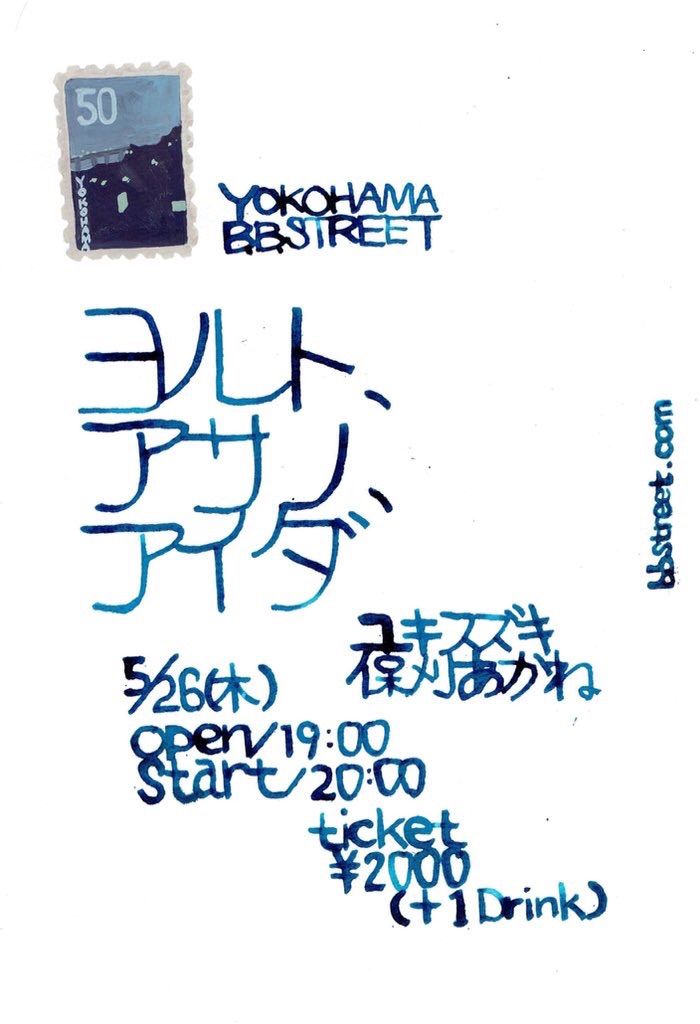 50
YOKOHAMA
YOKOHAMA
B.B.STREET
ヨルト、
アサノ、
アイダ
bbstreet.com
ユキスズキ
保刈あかね
5/26(木)
open/19:00
start/20:00
ticket
¥2000
(+1Drink)